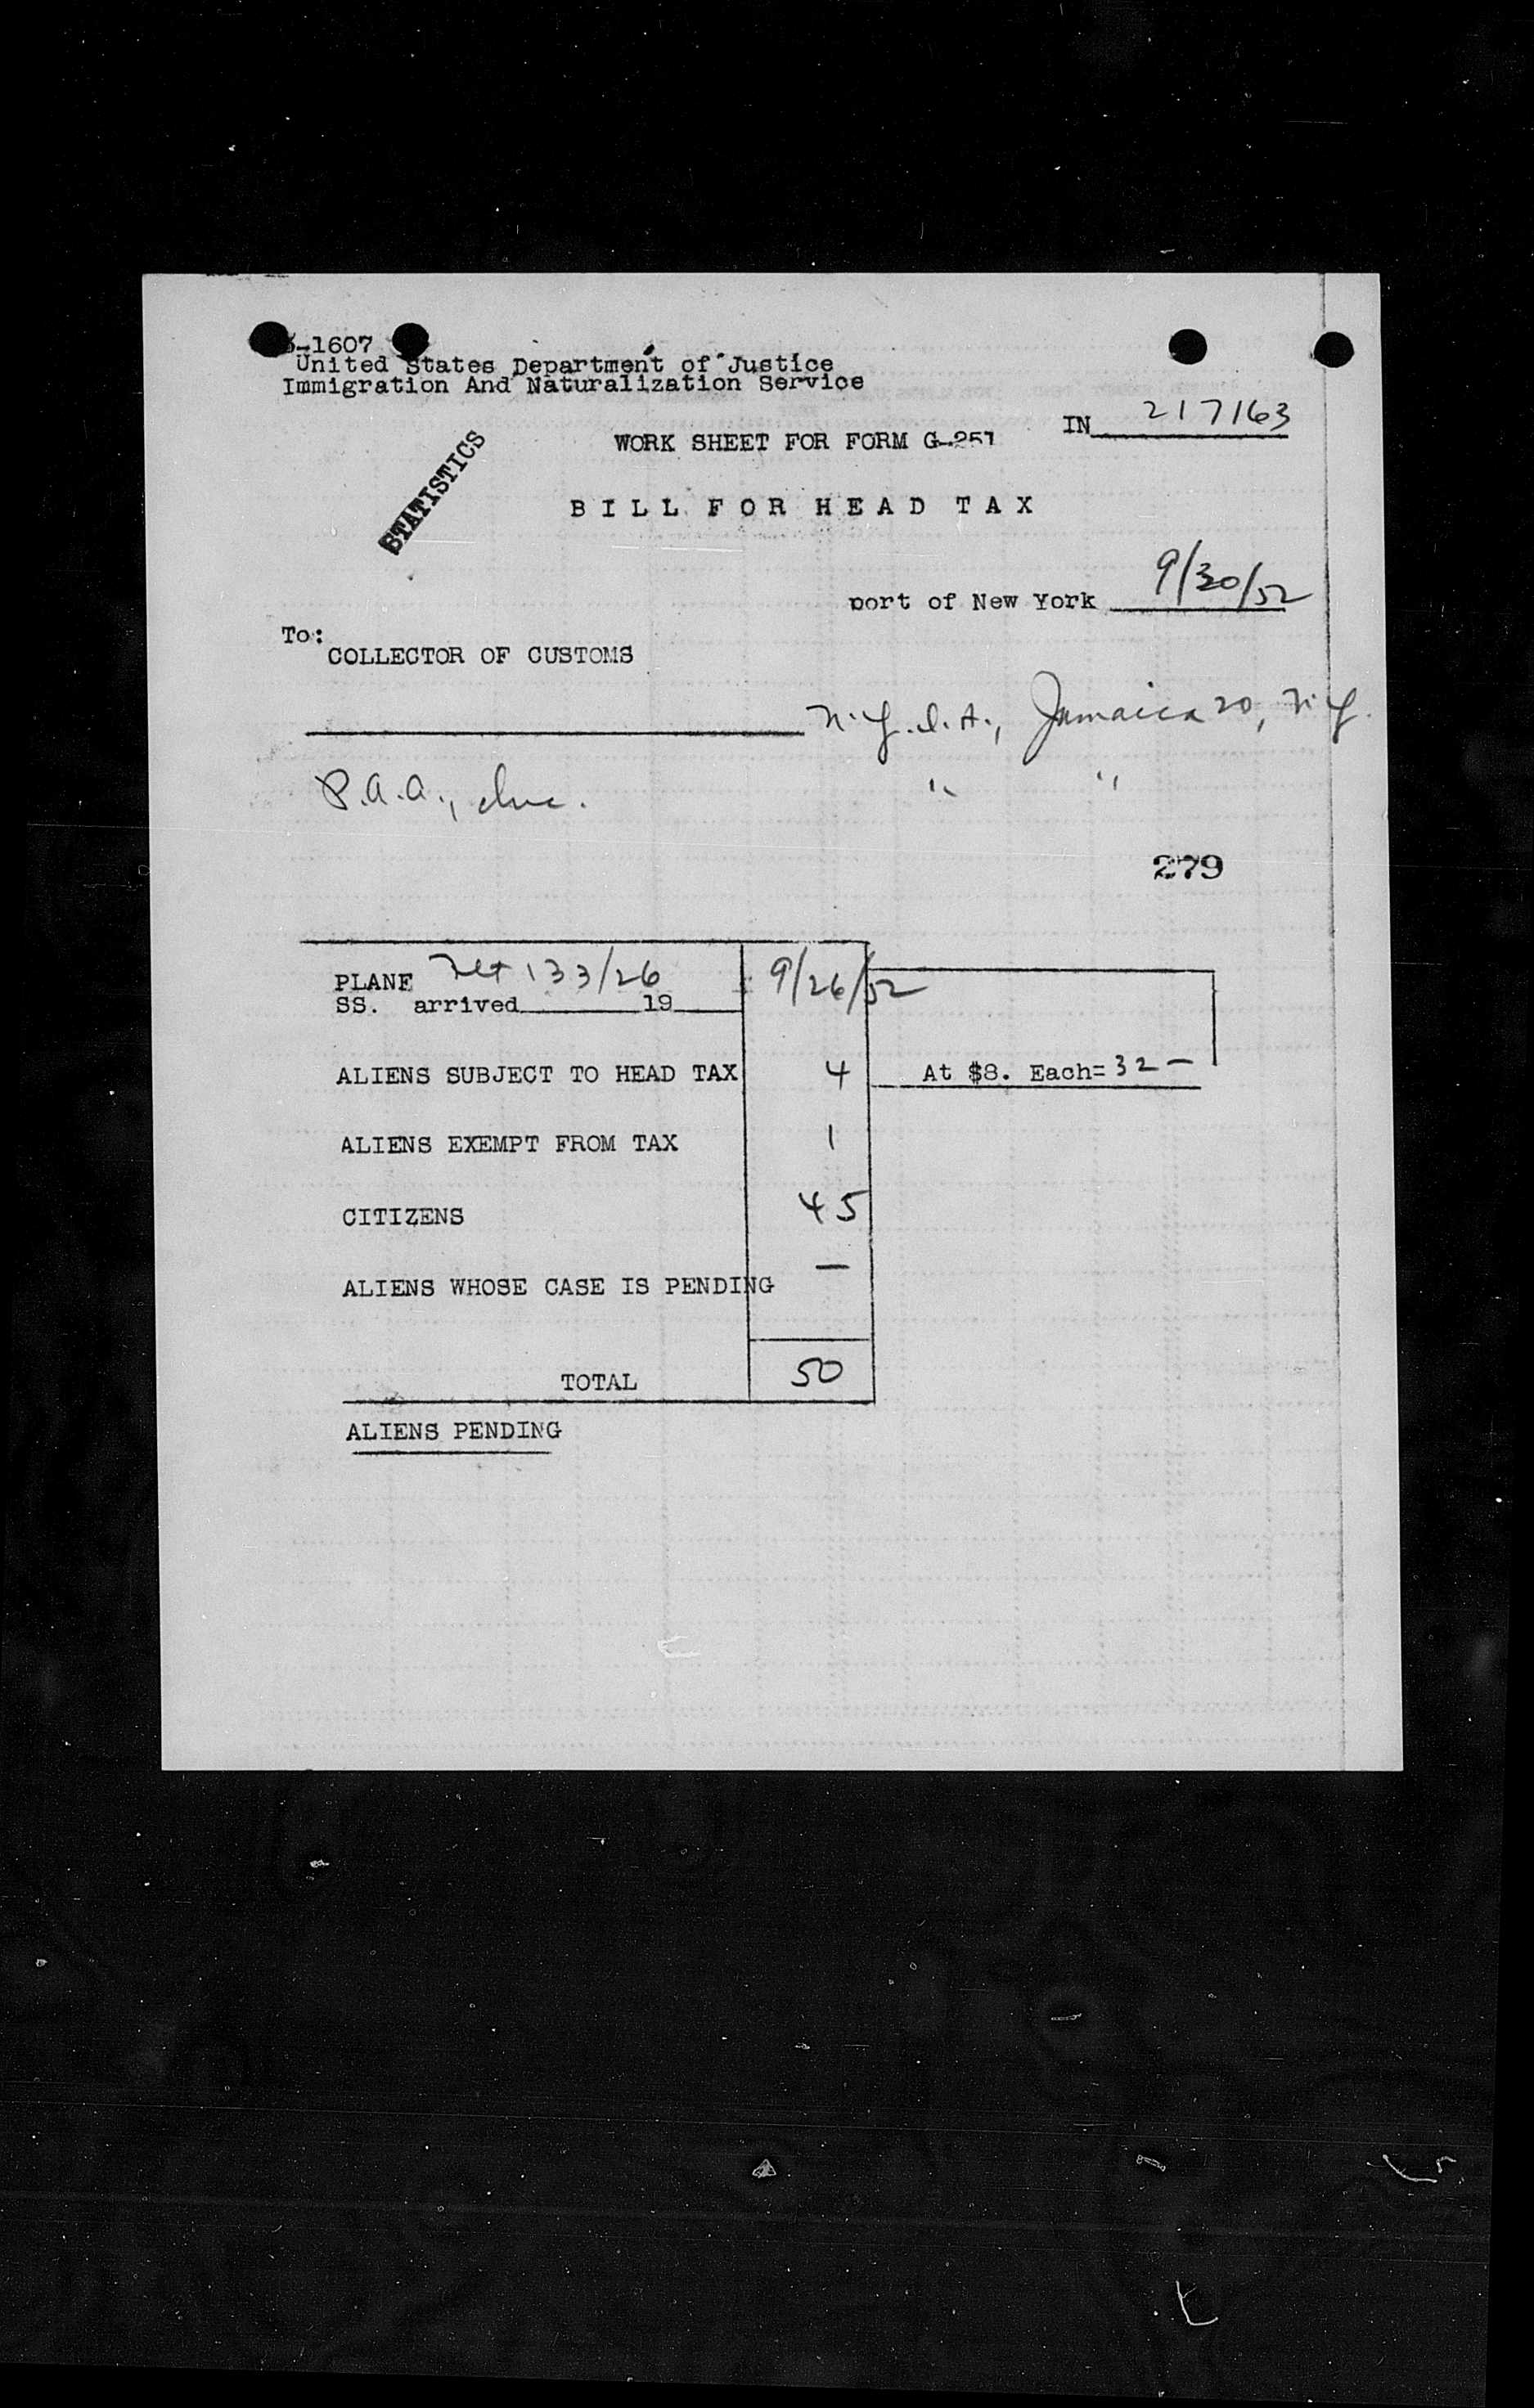 -1607
United States Department of Justice
Immigration And Naturalization Service
IN 217163
WORK SHEET FOR FORM G-251
STATISTICS
BILL FOR HEAD TAX
port of New York 9/30/52
To:
COLLECTOR OF CUSTOMS
N.Y.I.A., Jamaica 20, N.Y.
P.A.A., Inc. " "
279
PLANE Flt 133/26 9/26/52
SS. arrived 19
ALIENS SUBJECT TO HEAD TAX 4 At $8. Each= 32 —
ALIENS EXEMPT FROM TAX 1
CITIZENS 45
ALIENS WHOSE CASE IS PENDING —
TOTAL 50
ALIENS PENDING